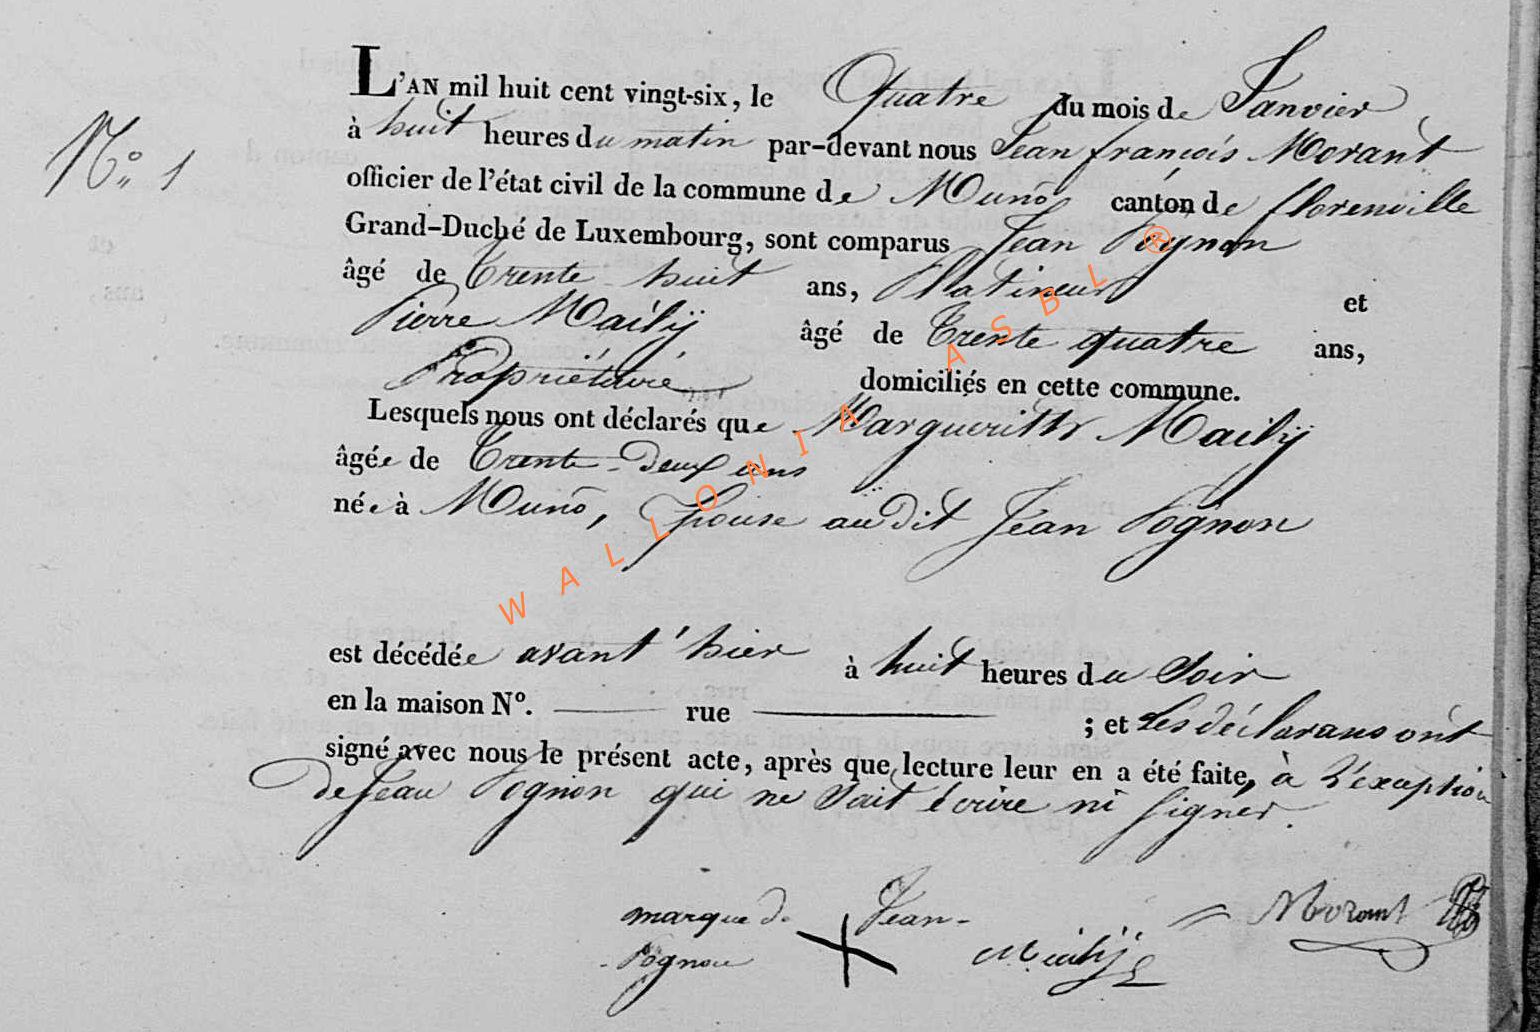 N° 1
L'AN mil huit cent vingt-six, le Quatre du mois de Janvier,
à huit heures du matin par-devant nous Jean françois Morant
officier de l'état civil de la commune de Muno canton de florenville
Grand-Duché de Luxembourg, sont comparus Jean Pognon
âgé de Trente-huit ans, Platineur et
Pierre Maily âgé de Trente quatre ans,
Propriétaire domiciliés en cette commune.
Lesquels nous ont déclarés que Margueritte Maily
âgée de Trente-Deux ans
née à Muno, Epouse au dit Jean Pognon
est décédée avant'hier à huit heures du Soir
en la maison N°. — rue — ; et Les déclarans ont
signé avec nous le présent acte, après que lecture leur en a été faite, à l'exception
de Jean Pognon qui ne Sait écrire ni Signer.
marque de Jean-
Pognon
Maily
Morant
WALLONIA ASBL ®